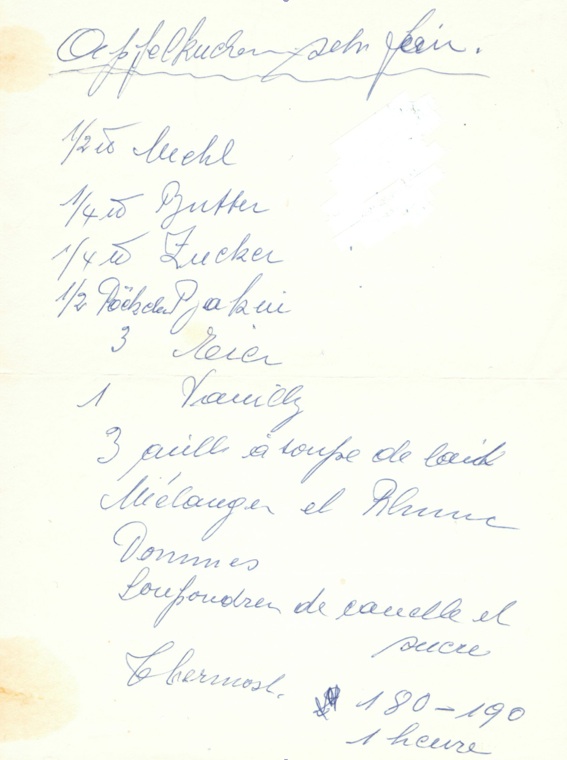 Apfelkuchen sehr fein.
1/2 ℔ Mehl
1/4 ℔ Butter
1/4 ℔ Zucker
1/2 Päckchen Bakin
3 Eier
1 Vanille
3 cuill à soupe de lait
Mélanger et Rhum
Pommes
Soupoudrer de canelle et
sucre
Thermost. 180-190
1 heure